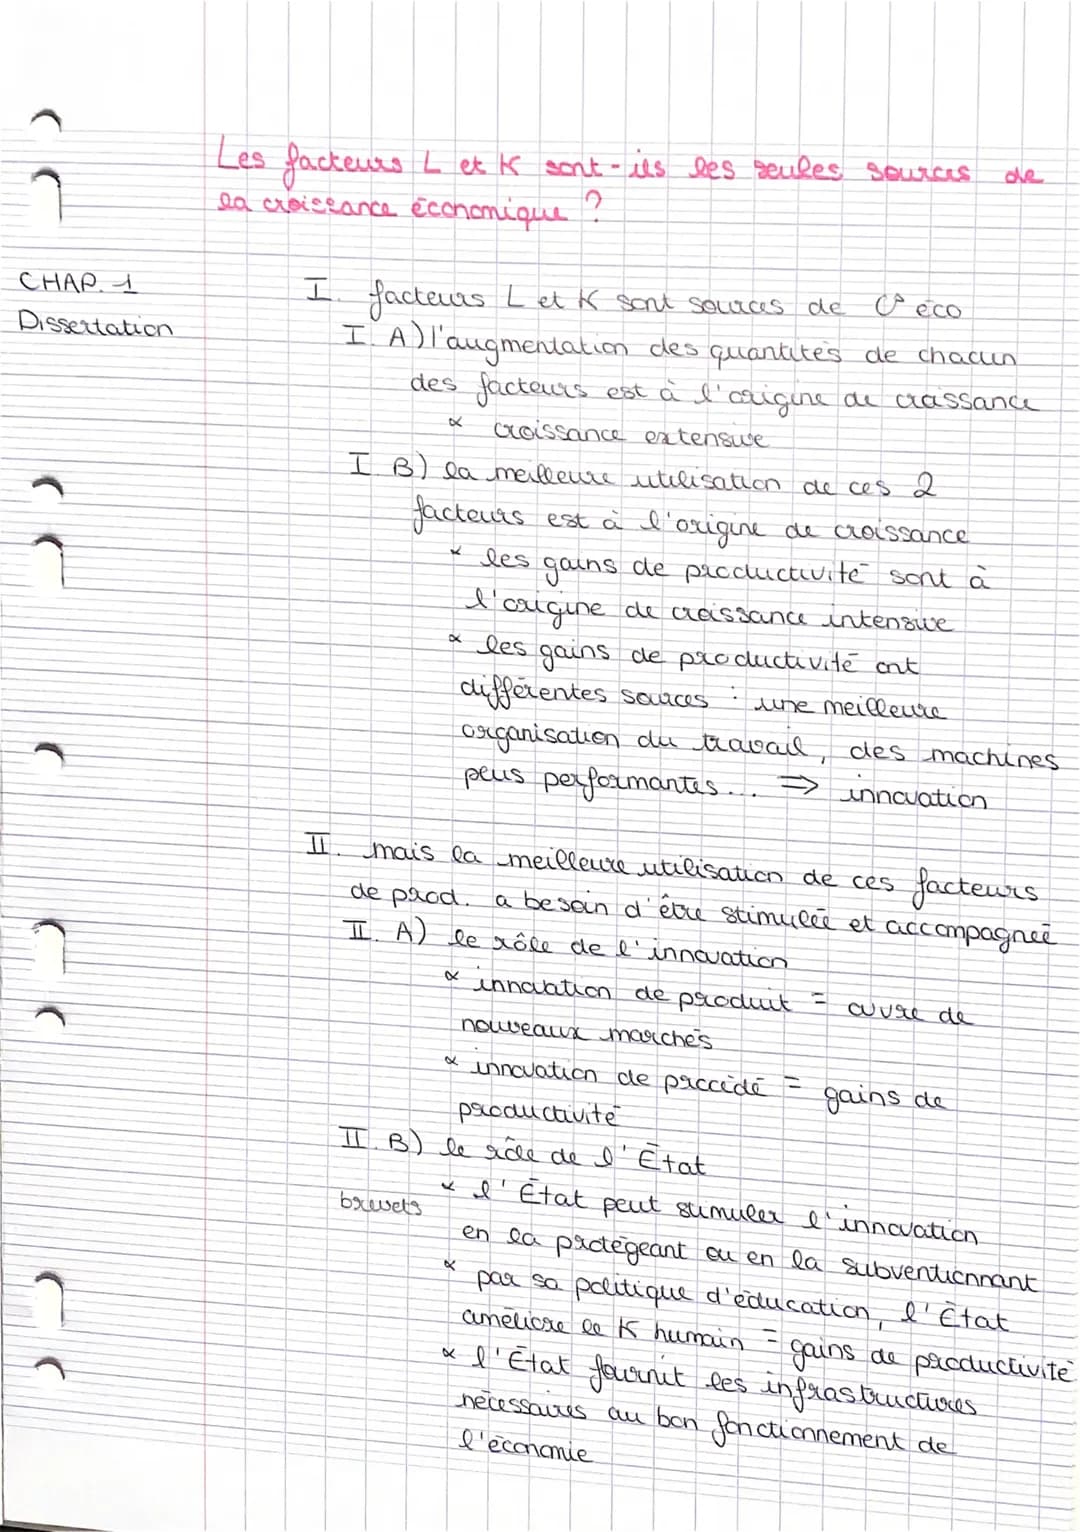 Les facteurs L et K sont-ils les seules sources de
la croissance économique ?
CHAP. 1
Dissertation
I. facteurs L et K sont sources de C° éco
I. A) l'augmentation des quantités de chacun
des facteurs est à l'origine de croissance
× croissance extensive
I. B) la meilleure utilisation de ces 2
facteurs est à l'origine de croissance
× les gains de productivité sont à
l'origine de croissance intensive
× les gains de productivité ont
différentes sources : une meilleure
organisation du travail, des machines
plus performantes... ⇒ innovation
II. mais la meilleure utilisation de ces facteurs
de prod. a besoin d'être stimulée et accompagnée
II. A) le rôle de l'innovation
× innovation de produit = ouvre de
nouveaux marchés
× innovation de procédé = gains de
productivité
II. B) le rôle de l'État
× l'État peut stimuler l'innovation
brevets
en la protégeant ou en la subventionnant
× par sa politique d'éducation, l'État
améliore le K humain = gains de productivité
× l'État fournit les infrastructures
nécessaires au bon fonctionnement de
l'économie